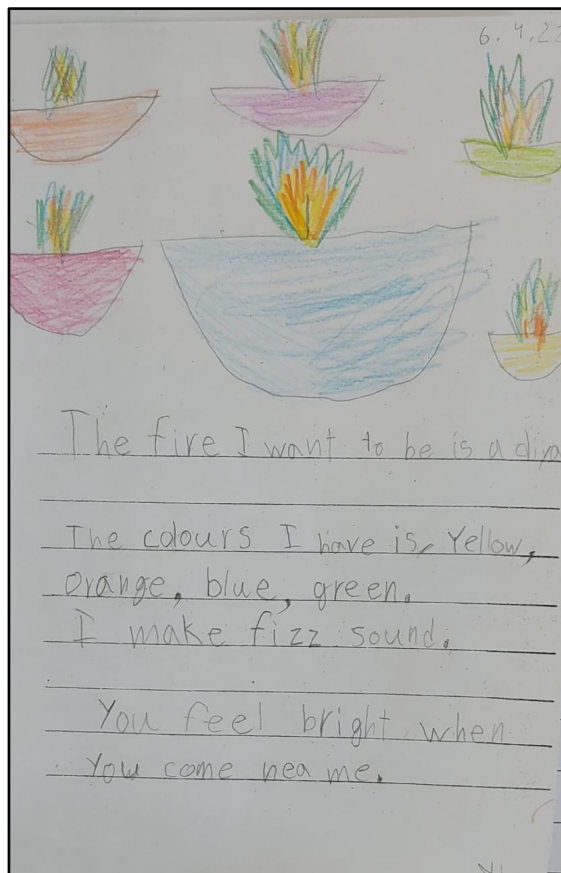 6.4.22
The fire I want to be is a diya
The colours I have is, Yellow,
orange, blue, green.
I make fizz sound.
You feel bright when
You come nea me.